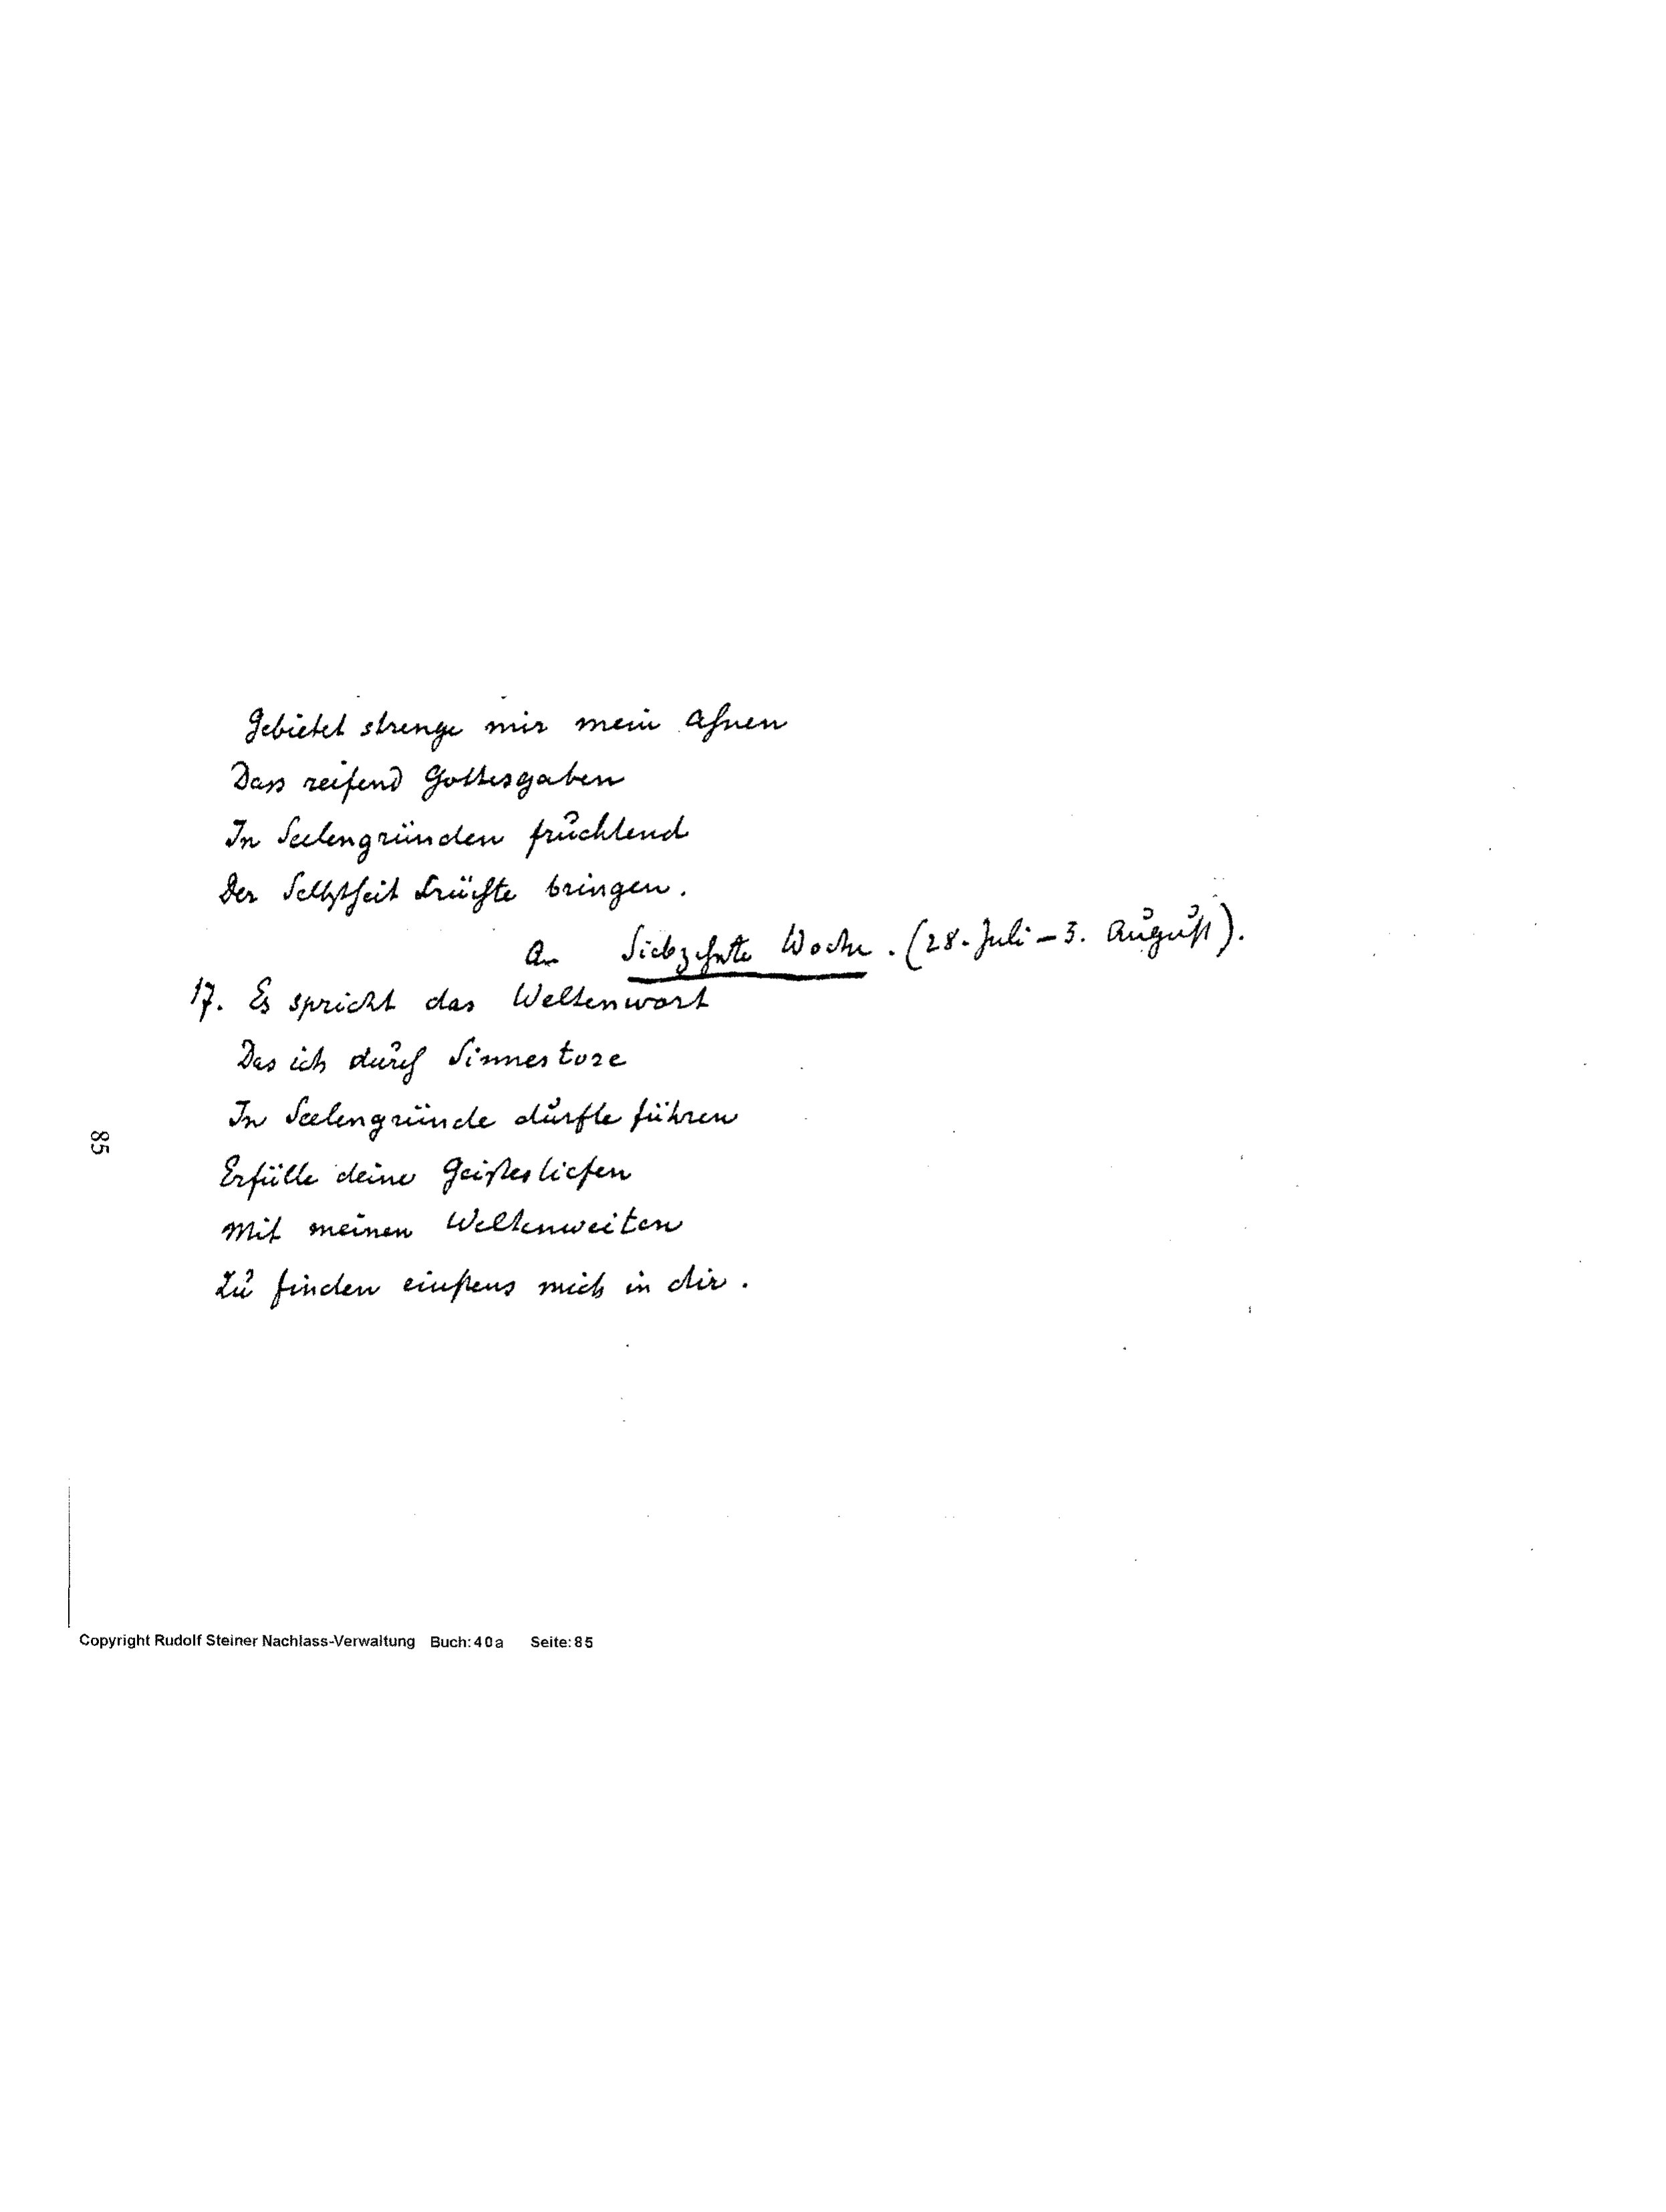 Gebietet strenge mir mein Ahnen
Dass reifend Gottesgaben
In Seelengründen fruchtend
Der Selbstheit Früchte bringen.
An Siebzehnte Woche. (28. Juli – 3. August).
17. Es spricht das Weltenwort
Das ich durch Sinnestore
In Seelengründe durfte führen
Erfülle deine Geistestiefen
Mit meinen Weltenweiten
Zu finden einstens mich in dir.
85
Copyright Rudolf Steiner Nachlass-Verwaltung Buch: 40a Seite: 85